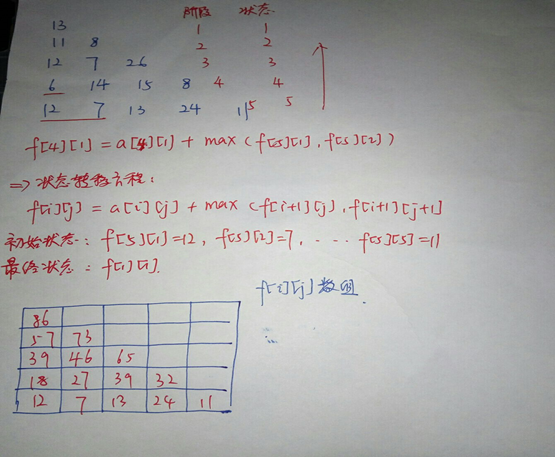 阶段 状态
13 1 1
11 8 2 2
12 7 26 3 3
6 14 15 8 4 4
12 7 13 24 11 5 5
f[4][1] = a[4][1] + max(f[5][1], f[5][2])
=> 状态转移方程:
f[i][j] = a[i][j] + max(f[i+1][j], f[i+1][j+1]
初始状态: f[5][1]=12, f[5][2]=7, ... f[5][5]=11
最终状态: f[1][1].
f[i][j] 数组
86
57 73
39 46 65
18 27 39 32
12 7 13 24 11